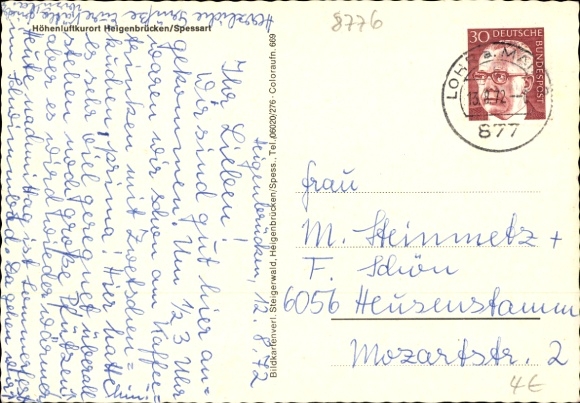 8776
Höhenluftkurort Heigenbrücken/Spessart
Heigenbrücken, 12.8.72
Ihr Lieben!
Wir sind gut hier an=
gekommen. Um 1/2 3 Uhr
waren wir schon am Kaffee=
trinken mit Zwetschen=
kuchen, prima! Hier hat
es sehr viel geregnet überall
stehen noch große Pfützen
aber es wird wieder wärmer
Heute nachmittag ist Sommerfest
Herzliche Grüße
Bildkartenverl. Steigerwald, Heigenbrücken/Spess., Tel. 06020/276 - Coloraufn. 669
30 DEUTSCHE
BUNDESPOST
LOHR a. MAIN
877
Frau
M. Steinmetz +
F. Schön
6056 Heusenstamm
Mozartstr. 2
4€